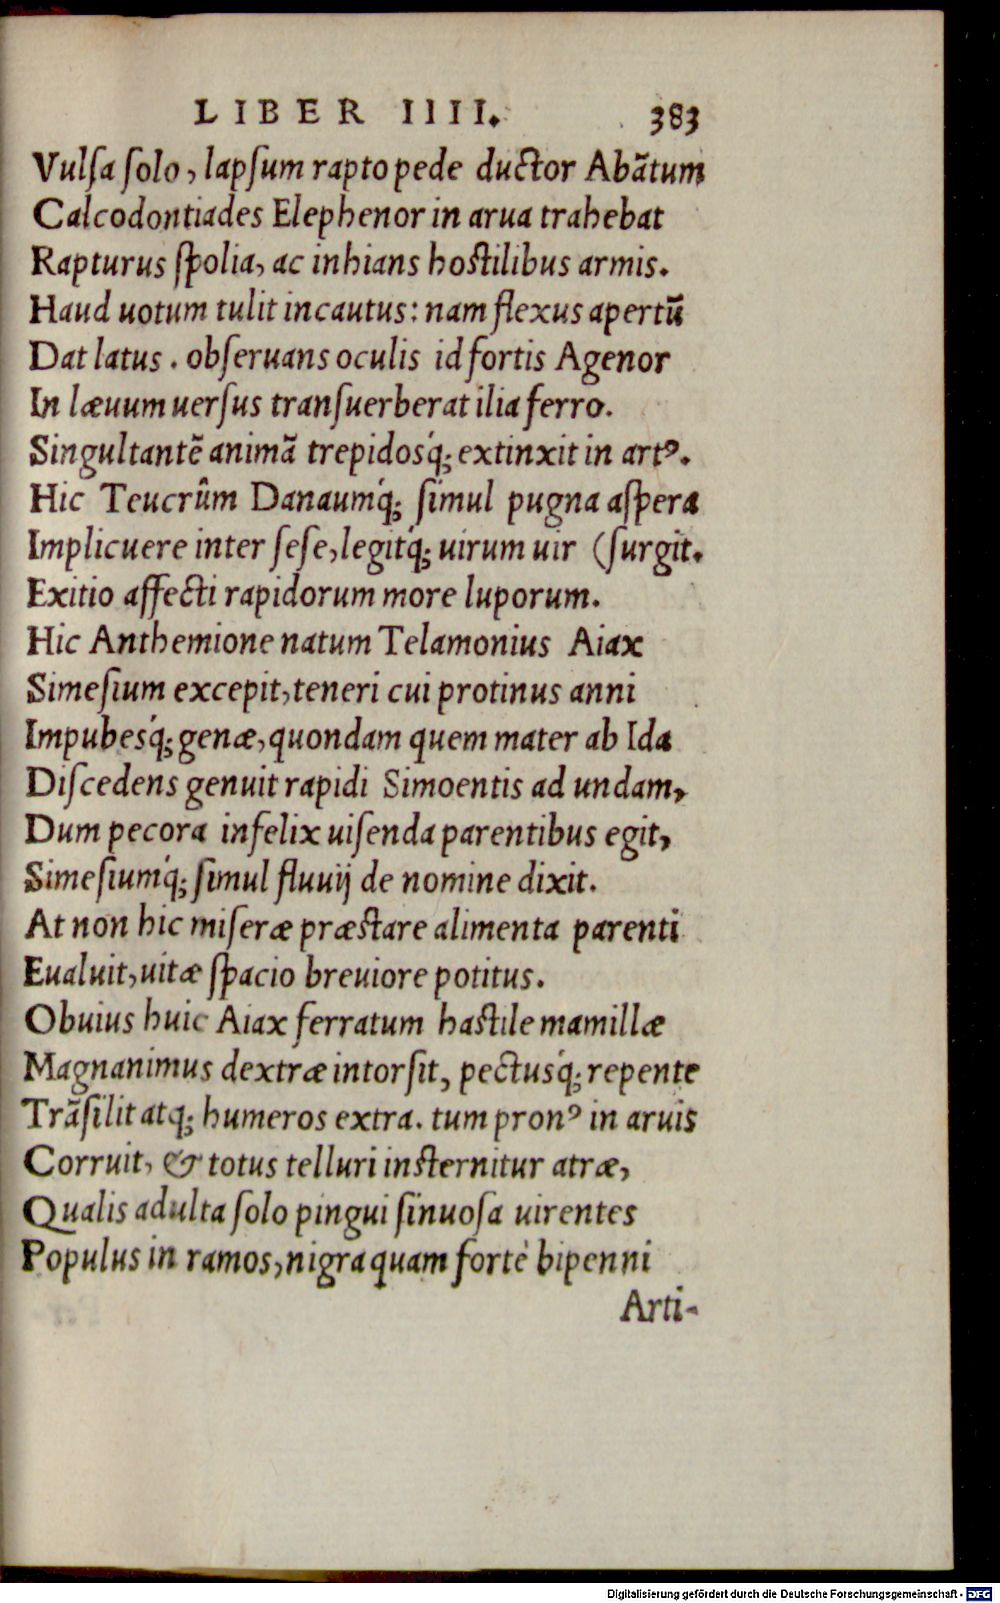 LIBER IIII. 383
Vulſa ſolo, lapſum rapto pede ductor Abãtum
Calcodontiades Elephenor in arua trahebat
Rapturus ſpolia, ac inhians hostilibus armis.
Haud uotum tulit incautus: nam flexus apertũ
Dat latus. obſeruans oculis id fortis Agenor
In læuum uerſus tranſuerberat ilia ferro.
Singultantẽ animã trepidosq́; extinxit in artꝰ.
Hic Teucrûm Danaumq́; ſimul pugna aſpera
Implicuere inter ſeſe, legitq́; uirum uir (ſurgit.
Exitio affecti rapidorum more luporum.
Hic Anthemione natum Telamonius Aiax
Simeſium excepit, teneri cui protinus anni
Impubesq́; genæ, quondam quem mater ab Ida
Diſcedens genuit rapidi Simoentis ad undam,
Dum pecora infelix uiſenda parentibus egit,
Simeſiumq́; ſimul fluuij de nomine dixit.
At non hic miſeræ præstare alimenta parenti
Eualuit, uitæ ſpacio breuiore potitus.
Obuius huic Aiax ferratum hastile mamillæ
Magnanimus dextræ intorſit, pectusq́; repente
Trãſilit atq; humeros extra. tum pronꝰ in aruis
Corruit, & totus telluri insternitur atræ,
Qualis adulta ſolo pingui ſinuoſa uirentes
Populus in ramos, nigra quam fortè bipenni
Arti-
Digitalisierung gefördert durch die Deutsche Forschungsgemeinschaft - DFG